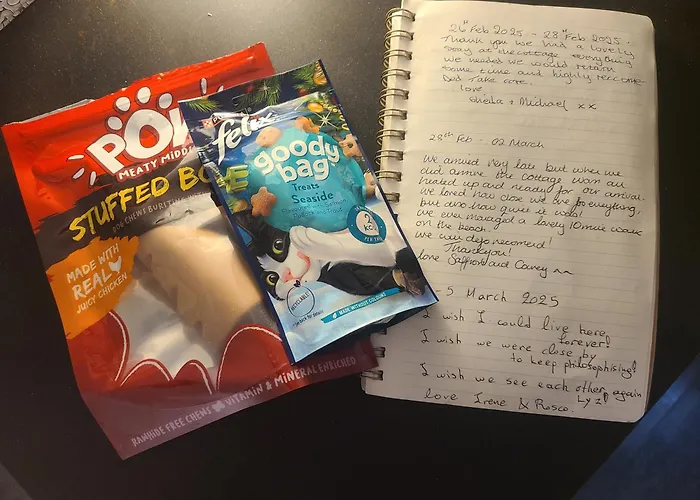 PAW
MEATY MIDD
STUFFED BO E
DOG CHEW BURSTING WIT
MADE WITH
REAL
JUICY CHICKEN
RAWHIDE FREE CHEWS VITAMIN & MINERAL ENRICHED
felix
goody
bag
Treats
Seaside
Flavoured with Salmon,
2
kcal
PER TREAT
RECYCLABLE
MADE WITHOUT COLOURS
26th Feb 2025 - 28th Feb 2025.
Thank you we had a lovely
stay at the cottage everything
we needed we would return
some time and highly reccomend
take care.
Love
Sheila + Michael xx
28th Feb - 02 March
We arrived very late but when we
did arrive the cottage was all
heated up and ready for our arrival.
We loved how close we are to everything,
but also how quiet it was!
We even managed a lovely 10 min walk
on the beach.
We will defo recomend!
Thankyou!
love Saffron and
- 5 March 2025
I wish I could live here
forever!
I wish we were close by
to keep philosophising!
I wish we see each other again
love Irene & Rosco.